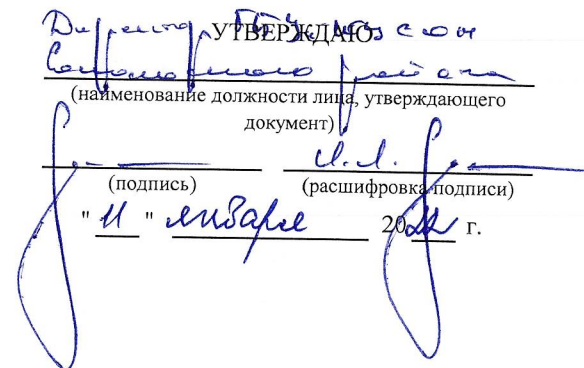 УТВЕРЖДАЮ
Директор ГБУ
района
(наименование должности лица, утверждающего
документ)
(подпись) (расшифровка подписи)
" 11 " января 2022 г.